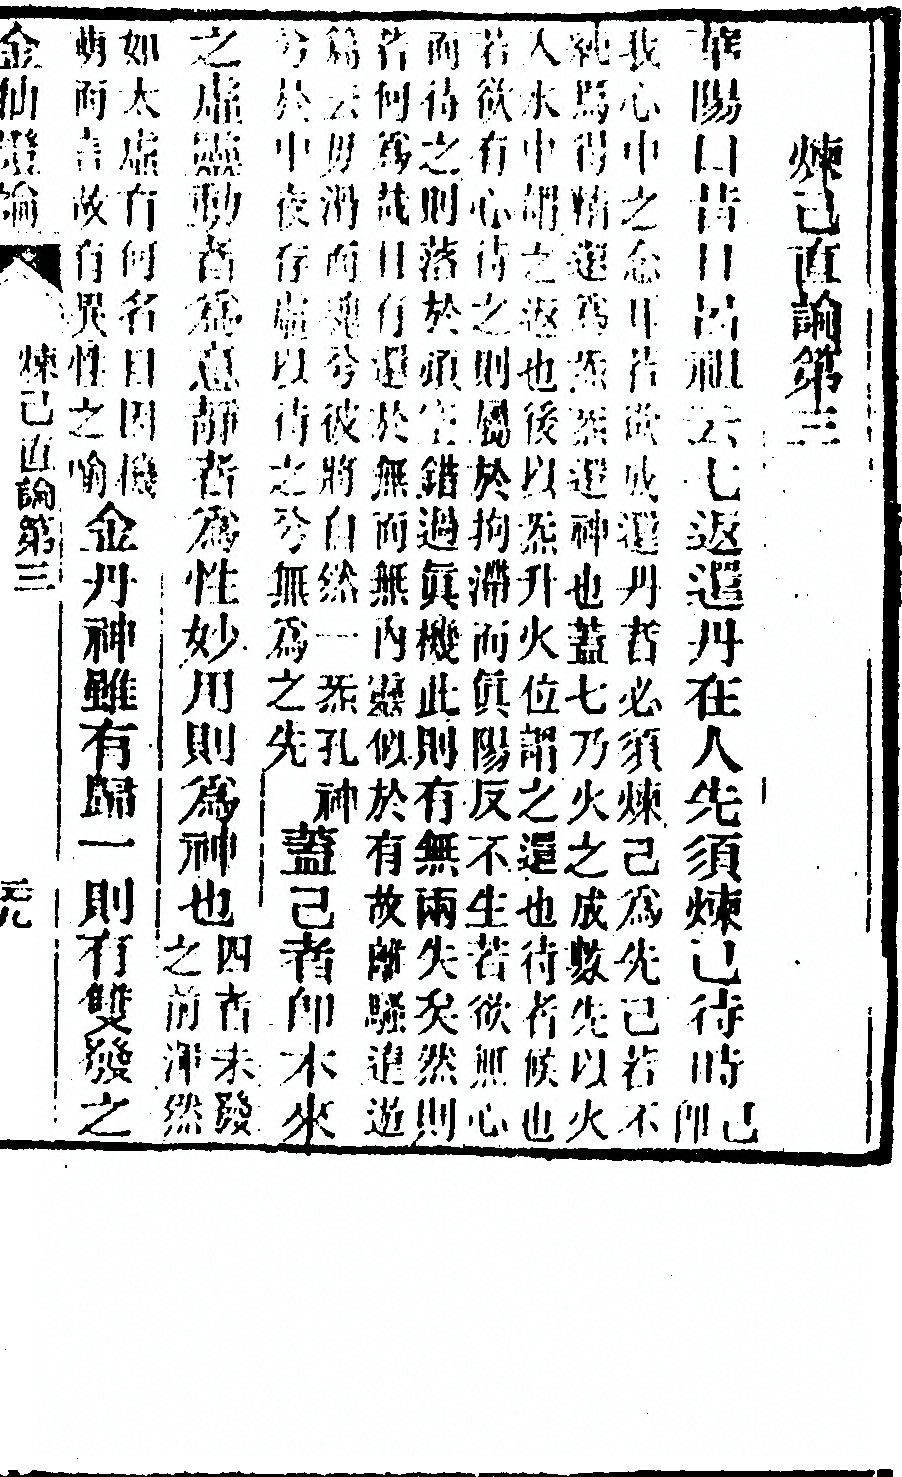 煉己直論第三
華陽曰昔日呂祖云七返還丹在人先須煉己待時己即
我心中之念耳若欲成還丹者必須煉己爲先己若不
純焉得精還爲炁炁還神也蓋七乃火之成數先以火
入水中謂之返也後以炁升火位謂之還也待者候也
若欲有心待之則屬於拘滯而眞陽反不生若欲無心
而待之則落於頑空錯過眞機此則有無兩失矣然則
若何爲哉曰有還於無而無內靈似於有故離騷遠遊
篇云毋滑而魂兮彼將自然一炁孔神
兮於中夜存虛以待之兮無爲之先
蓋己者即本來
之虛靈動者爲意靜者爲性妙用則爲神也
四者未發
之前渾然
如太虛有何名目因機
萌而言故有異性之喻
金丹神雖有歸一則有雙發之
金仙證論
煉己直論第三
元九